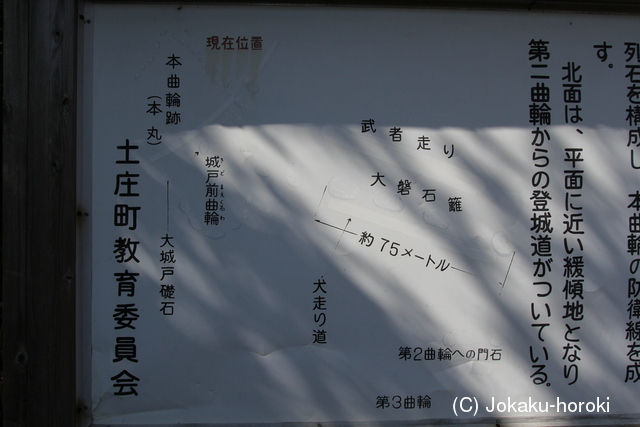 列石を構成し、本曲輪の防衛線を成
す。
北面は、平面に近い緩傾地となり
第二曲輪からの登城道がついている。
現在位置
本曲輪跡
(本丸)
城戸前曲輪
大城戸礎石
武者走り
大磐石籬
約75メートル
犬走り道
第2曲輪への門石
第3曲輪
土庄町教育委員会
(C) Jokaku-horoki